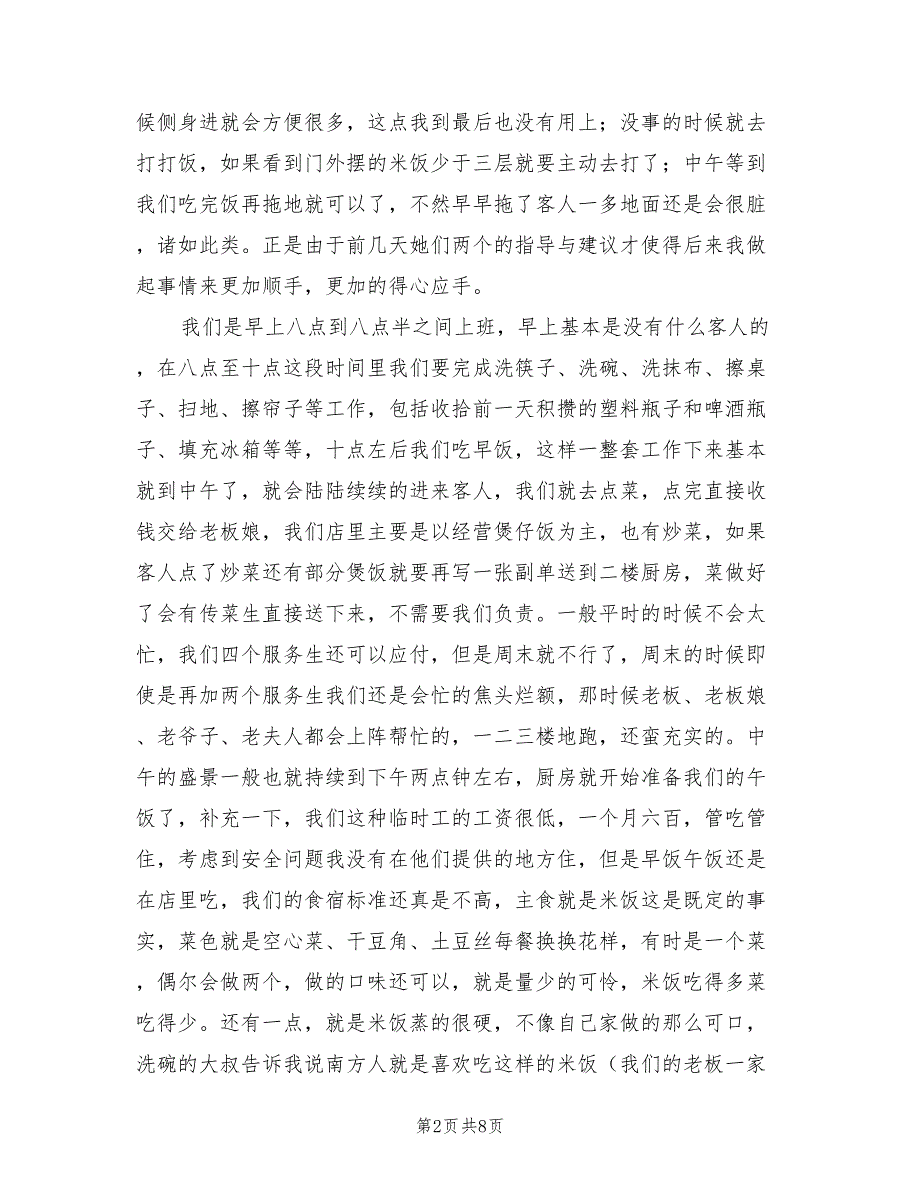 候侧身进就会方便很多，这点我到最后也没有用上；没事的时候就去
打打饭，如果看到门外摆的米饭少于三层就要主动去打了；中午等到
我们吃完饭再拖地就可以了，不然早早拖了客人一多地面还是会很脏
，诸如此类。正是由于前几天她们两个的指导与建议才使得后来我做
起事情来更加顺手，更加的得心应手。
我们是早上八点到八点半之间上班，早上基本是没有什么客人的
，在八点至十点这段时间里我们要完成洗筷子、洗碗、洗抹布、擦桌
子、扫地、擦帘子等工作，包括收拾前一天积攒的塑料瓶子和啤酒瓶
子、填充冰箱等等，十点左后我们吃早饭，这样一整套工作下来基本
就到中午了，就会陆陆续续的进来客人，我们就去点菜，点完直接收
钱交给老板娘，我们店里主要是以经营煲仔饭为主，也有炒菜，如果
客人点了炒菜还有部分煲饭就要再写一张副单送到二楼厨房，菜做好
了会有传菜生直接送下来，不需要我们负责。一般平时的时候不会太
忙，我们四个服务生还可以应付，但是周末就不行了，周末的时候即
使是再加两个服务生我们还是会忙的焦头烂额，那时候老板、老板娘
、老爷子、老夫人都会上阵帮忙的，一二三楼地跑，还蛮充实的。中
午的盛景一般也就持续到下午两点钟左右，厨房就开始准备我们的午
饭了，补充一下，我们这种临时工的工资很低，一个月六百，管吃管
住，考虑到安全问题我没有在他们提供的地方住，但是早饭午饭还是
在店里吃，我们的食宿标准还真是不高，主食就是米饭这是既定的事
实，菜色就是空心菜、干豆角、土豆丝每餐换换花样，有时是一个菜
，偶尔会做两个，做的口味还可以，就是量少的可怜，米饭吃得多菜
吃得少。还有一点，就是米饭蒸的很硬，不像自己家做的那么可口，
洗碗的大叔告诉我说南方人就是喜欢吃这样的米饭（我们的老板一家
第2页 共8页